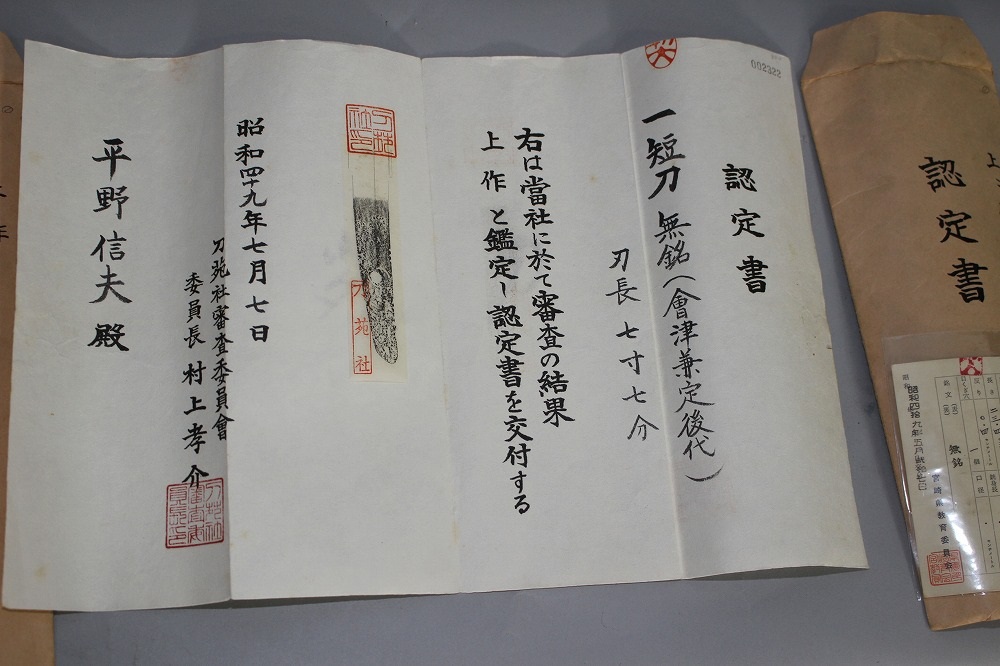 002322
認定書
一短刀 無銘(會津兼定後代)
刃長 七寸七分
右は當社に於て審査の結果
上作 と鑑定し認定書を交付する
刀苑社
昭和四十九年七月七日
刀苑社審査委員會
委員長 村上孝介
平野信夫 殿
上
認定書
無銘
宮崎県教育委員会